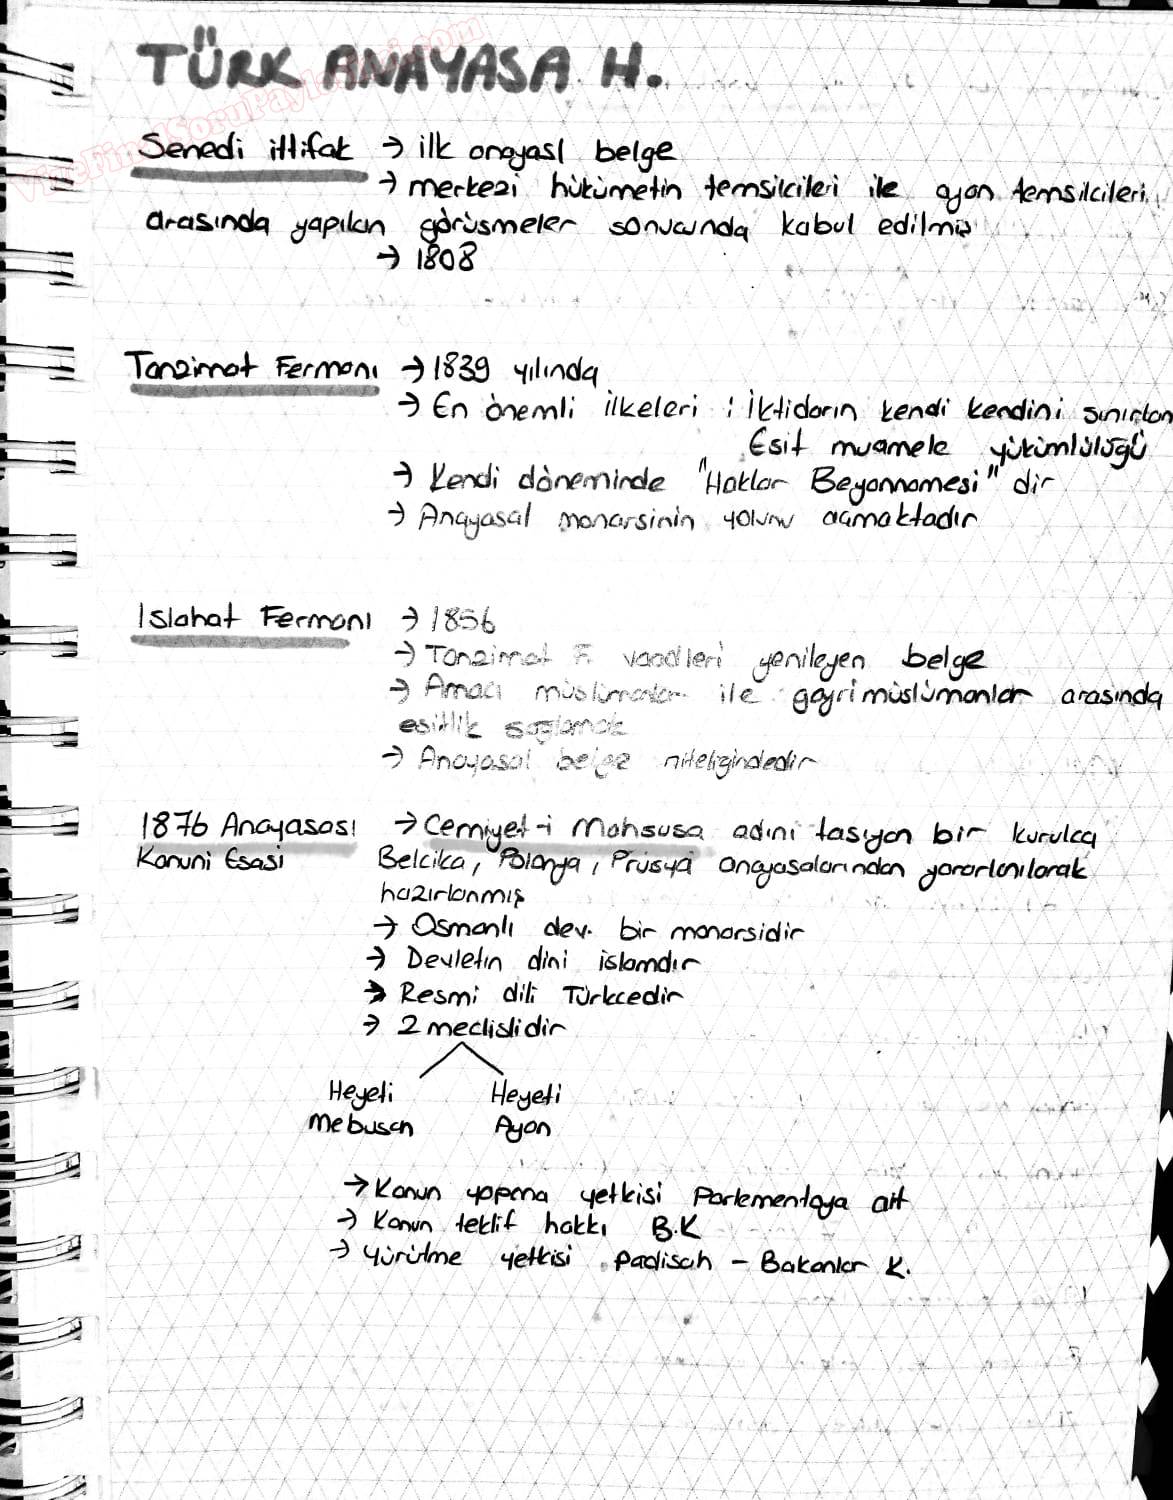 TÜRK ANAYASA H.
VizeFinalSoruPaylasimi.com
Senedi ittifak → ilk anayasl belge
→ merkezi hükümetin temsilcileri ile ayan temsilcileri
arasında yapılan görüşmeler sonucunda kabul edilmiş
→ 1808
Tanzimat Fermanı → 1839 yılında
→ En önemli ilkeleri : İktidarın kendi kendini sınırlan
Esit muamele yükümlülüğü
→ Kendi döneminde "Haklar Beyannamesi" dir
→ Anayasal monarsinin yolunu açmaktadır
Islahat Fermanı → 1856
→ Tanzimat F. vaadleri yenileyen belge
→ Amacı müslümanlar ile gayrimüslümanlar arasında
esitlik saglamak
→ Anayasal belge niteligindedir
1876 Anayasası → Cemiyet-i Mahsusa adını tasıyan bir kurulca
Kanuni Esasi Belcika, Polanya, Prusya anayasalarından yararlanılarak
hazırlanmış
→ Osmanlı dev. bir monarsidir
→ Devletin dini islamdır
→ Resmi dili Türkcedir
→ 2 meclislidir
Heyeti Heyeti
Mebusan Ayan
→ Kanun yapma yetkisi Parlementoya ait
→ Kanun teklif hakkı B.K
→ Yürütme yetkisi Padisah - Bakanlar K.